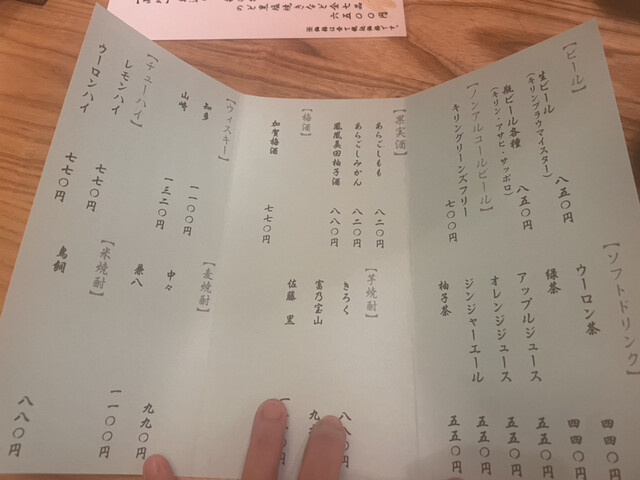 のど黒塩焼きなど全七品
六五〇〇円
※価格は全て税込価格です。
【ビール】
生ビール 八五〇円
（キリンブラウマイスター）
瓶ビール各種 八五〇円
（キリン・アサヒ・サッポロ）
【ノンアルコールビール】
キリングリーンズフリー 七〇〇円
【ソフトドリンク】
ウーロン茶 四四〇円
緑茶 四四〇円
アップルジュース 五五〇円
オレンジジュース 五五〇円
ジンジャーエール 五五〇円
柚子茶 五五〇円
【果実酒】
あらごしもも 八二〇円
あらごしみかん 八二〇円
鳳凰美田柚子酒 八八〇円
【梅酒】
加賀梅酒 七七〇円
【芋焼酎】
きろく 八八〇円
富乃宝山
佐藤 黒
【ウィスキー】
知多 一一〇〇円
山崎 一三二〇円
【チューハイ】
レモンハイ 七七〇円
ウーロンハイ 七七〇円
【麦焼酎】
中々 九九〇円
兼八 一一〇〇円
【米焼酎】
鳥飼 八八〇円